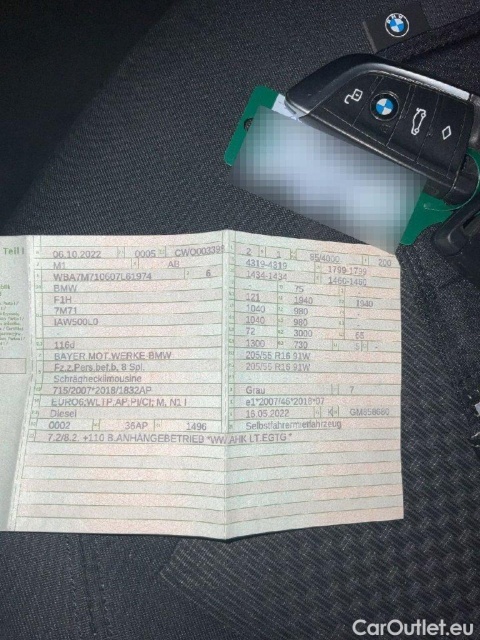 BMW
Teil I
06.10.2022 0005 CWO003398
M1 AB
WBA7M710607L61974 6
BMW
F1H
7M71
IAW500L0
116d
BAYER.MOT.WERKE-BMW
Fz.z.Pers.bef.b. 8 Spl.
Schräghecklimousine
715/2007*2018/1832AP
EURO6;WLTP;AP;PI/CI; M, N1 I
Diesel
0002 36AP 1496
7.2/8.2. +110 B.ANHÄNGEBETRIEB *WW.AHK LT.EGTG.*
2 85/4000 200
4319-4319 1799-1799
1434-1434 1460-1460
- 75
121 1940 1940
1040 980 -
1040 980 -
72 3000 65
1300 730 5 -
205/55 R16 91W
205/55 R16 91W
Grau 7
e1*2007/46*2018*07
16.05.2022 K GM958680
Selbstfahrermietfahrzeug
CarOutlet.eu